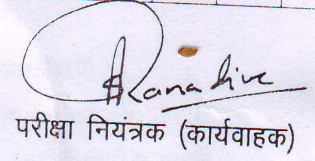 Ranadive
परीक्षा नियंत्रक (कार्यवाहक)